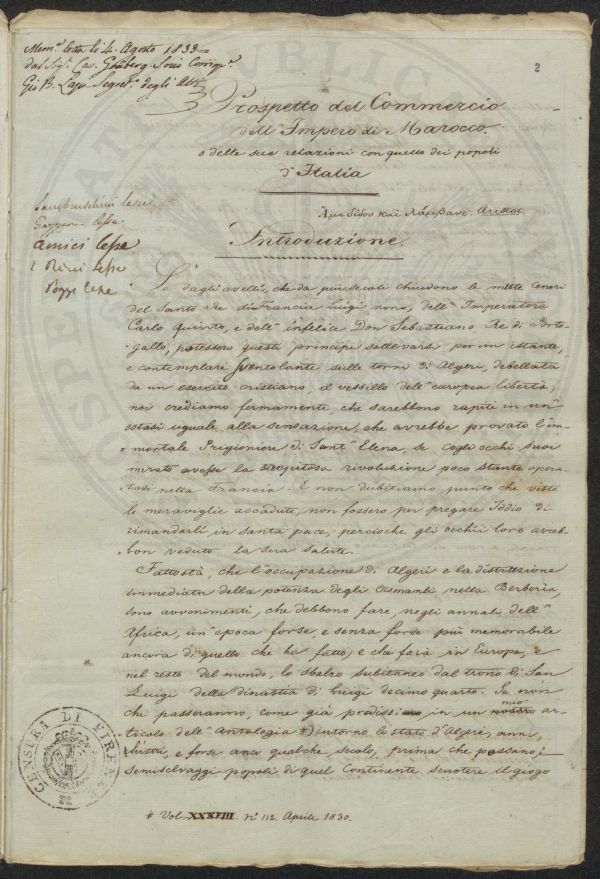 Mem.ª letta li 4. Agosto 1833
dal Sig.r Cav. Gråberg Socio Corrisp.e
Gio B. Lapi Segret.o degli Atti
2
Prospetto del Commercio
dell' Impero di Marocco.
e delle sue relazioni con quello dei popoli
d'Italia
Lambruschini lesse
Gazzeri lesse
amici lesse
Ricci lesse
Pozzi lesse
Introduzione.
Se dagli avelli, che da più secoli chiudono le mute ceneri
del Santo Re di Francia Luigi nono, dell' Imperatore
Carlo Quinto, e dell' infelice Don Sebastiano Re di Porto-
gallo, potessero questi principi sollevarsi per un istante,
e contemplare sventolante sulle torri di Algeri, debellata
da un esercito cristiano, il vessillo dell' europea libertà,
noi crediamo fermamente che sarebbono rapiti in un'
estasi uguale alla sensazione, che avrebbe provato l'im-
mortale Prigioniere di Sant' Elena, se cogli occhi suoi
mirato avesse la strepitosa rivoluzione poco stante opera-
tasi nella Francia. E non dubitiamo punto che viste
le meraviglie accadute, non fossero per pregare Iddio di
rimandarli in santa pace, perciocche gli occhi loro avreb-
bon veduto la sua salute.
Fattostà, che l'occupazione di Algeri e la distruzione
immediata della potenza degli Osmanli nella Berberia,
sono avvenimenti, che debbono fare, negli annali dell'
Africa, un' epoca forse, e senza forse più memorabile
ancora di quello che ha fatto, e che farà in Europa, e
nel resto del mondo, lo sbalzo subitaneo dal trono di San
Luigi della dinastia di Luigi decimo quarto. Se non
che passeranno, come già predissi in un nostro mio ar-
ticolo dell' Antologia *) intorno lo stato d'Algeri, anni,
lustri, e forse anco qualche secolo, prima che possano i
semiselvaggi popoli di quel Continente scuotere il giogo
CENSURA DI FIRENZE
* Vol. XXXVIII. N.º 112. Aprile 1830.